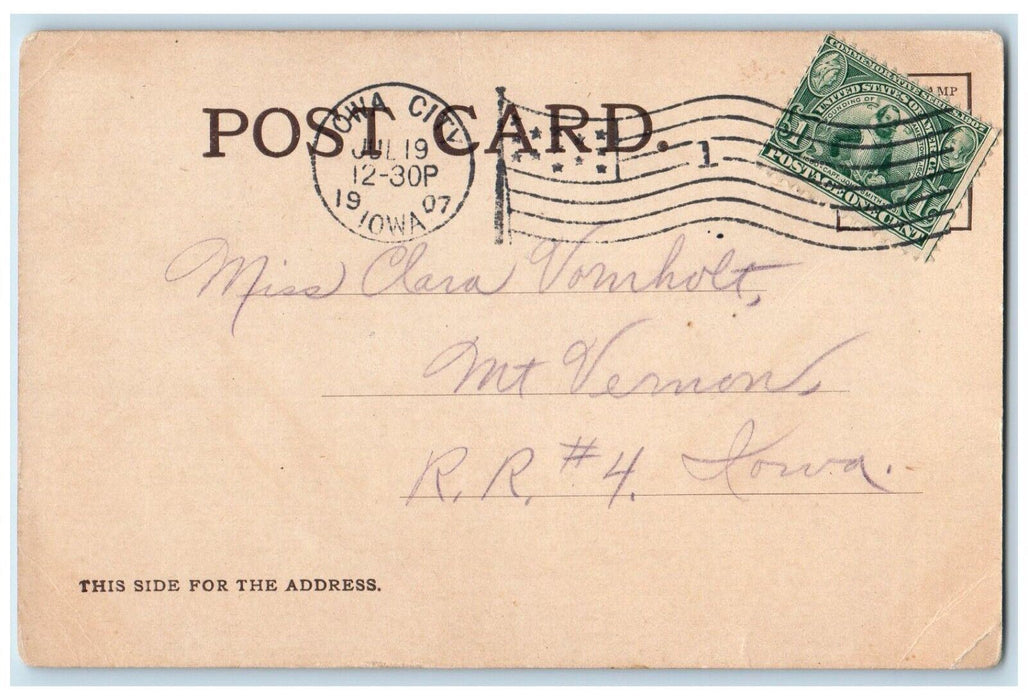 POST CARD.
IOWA CITY
JUL 19
12-30P
19 07
IOWA
1
COMMEMORATIVE SERIES 1907
UNITED STATES OF AMERICA
FOUNDING OF
1 1
POSTAGE ONE CENT
Miss Clara Vornholt,
Mt Vernon,
R.R. #4. Iowa.
THIS SIDE FOR THE ADDRESS.